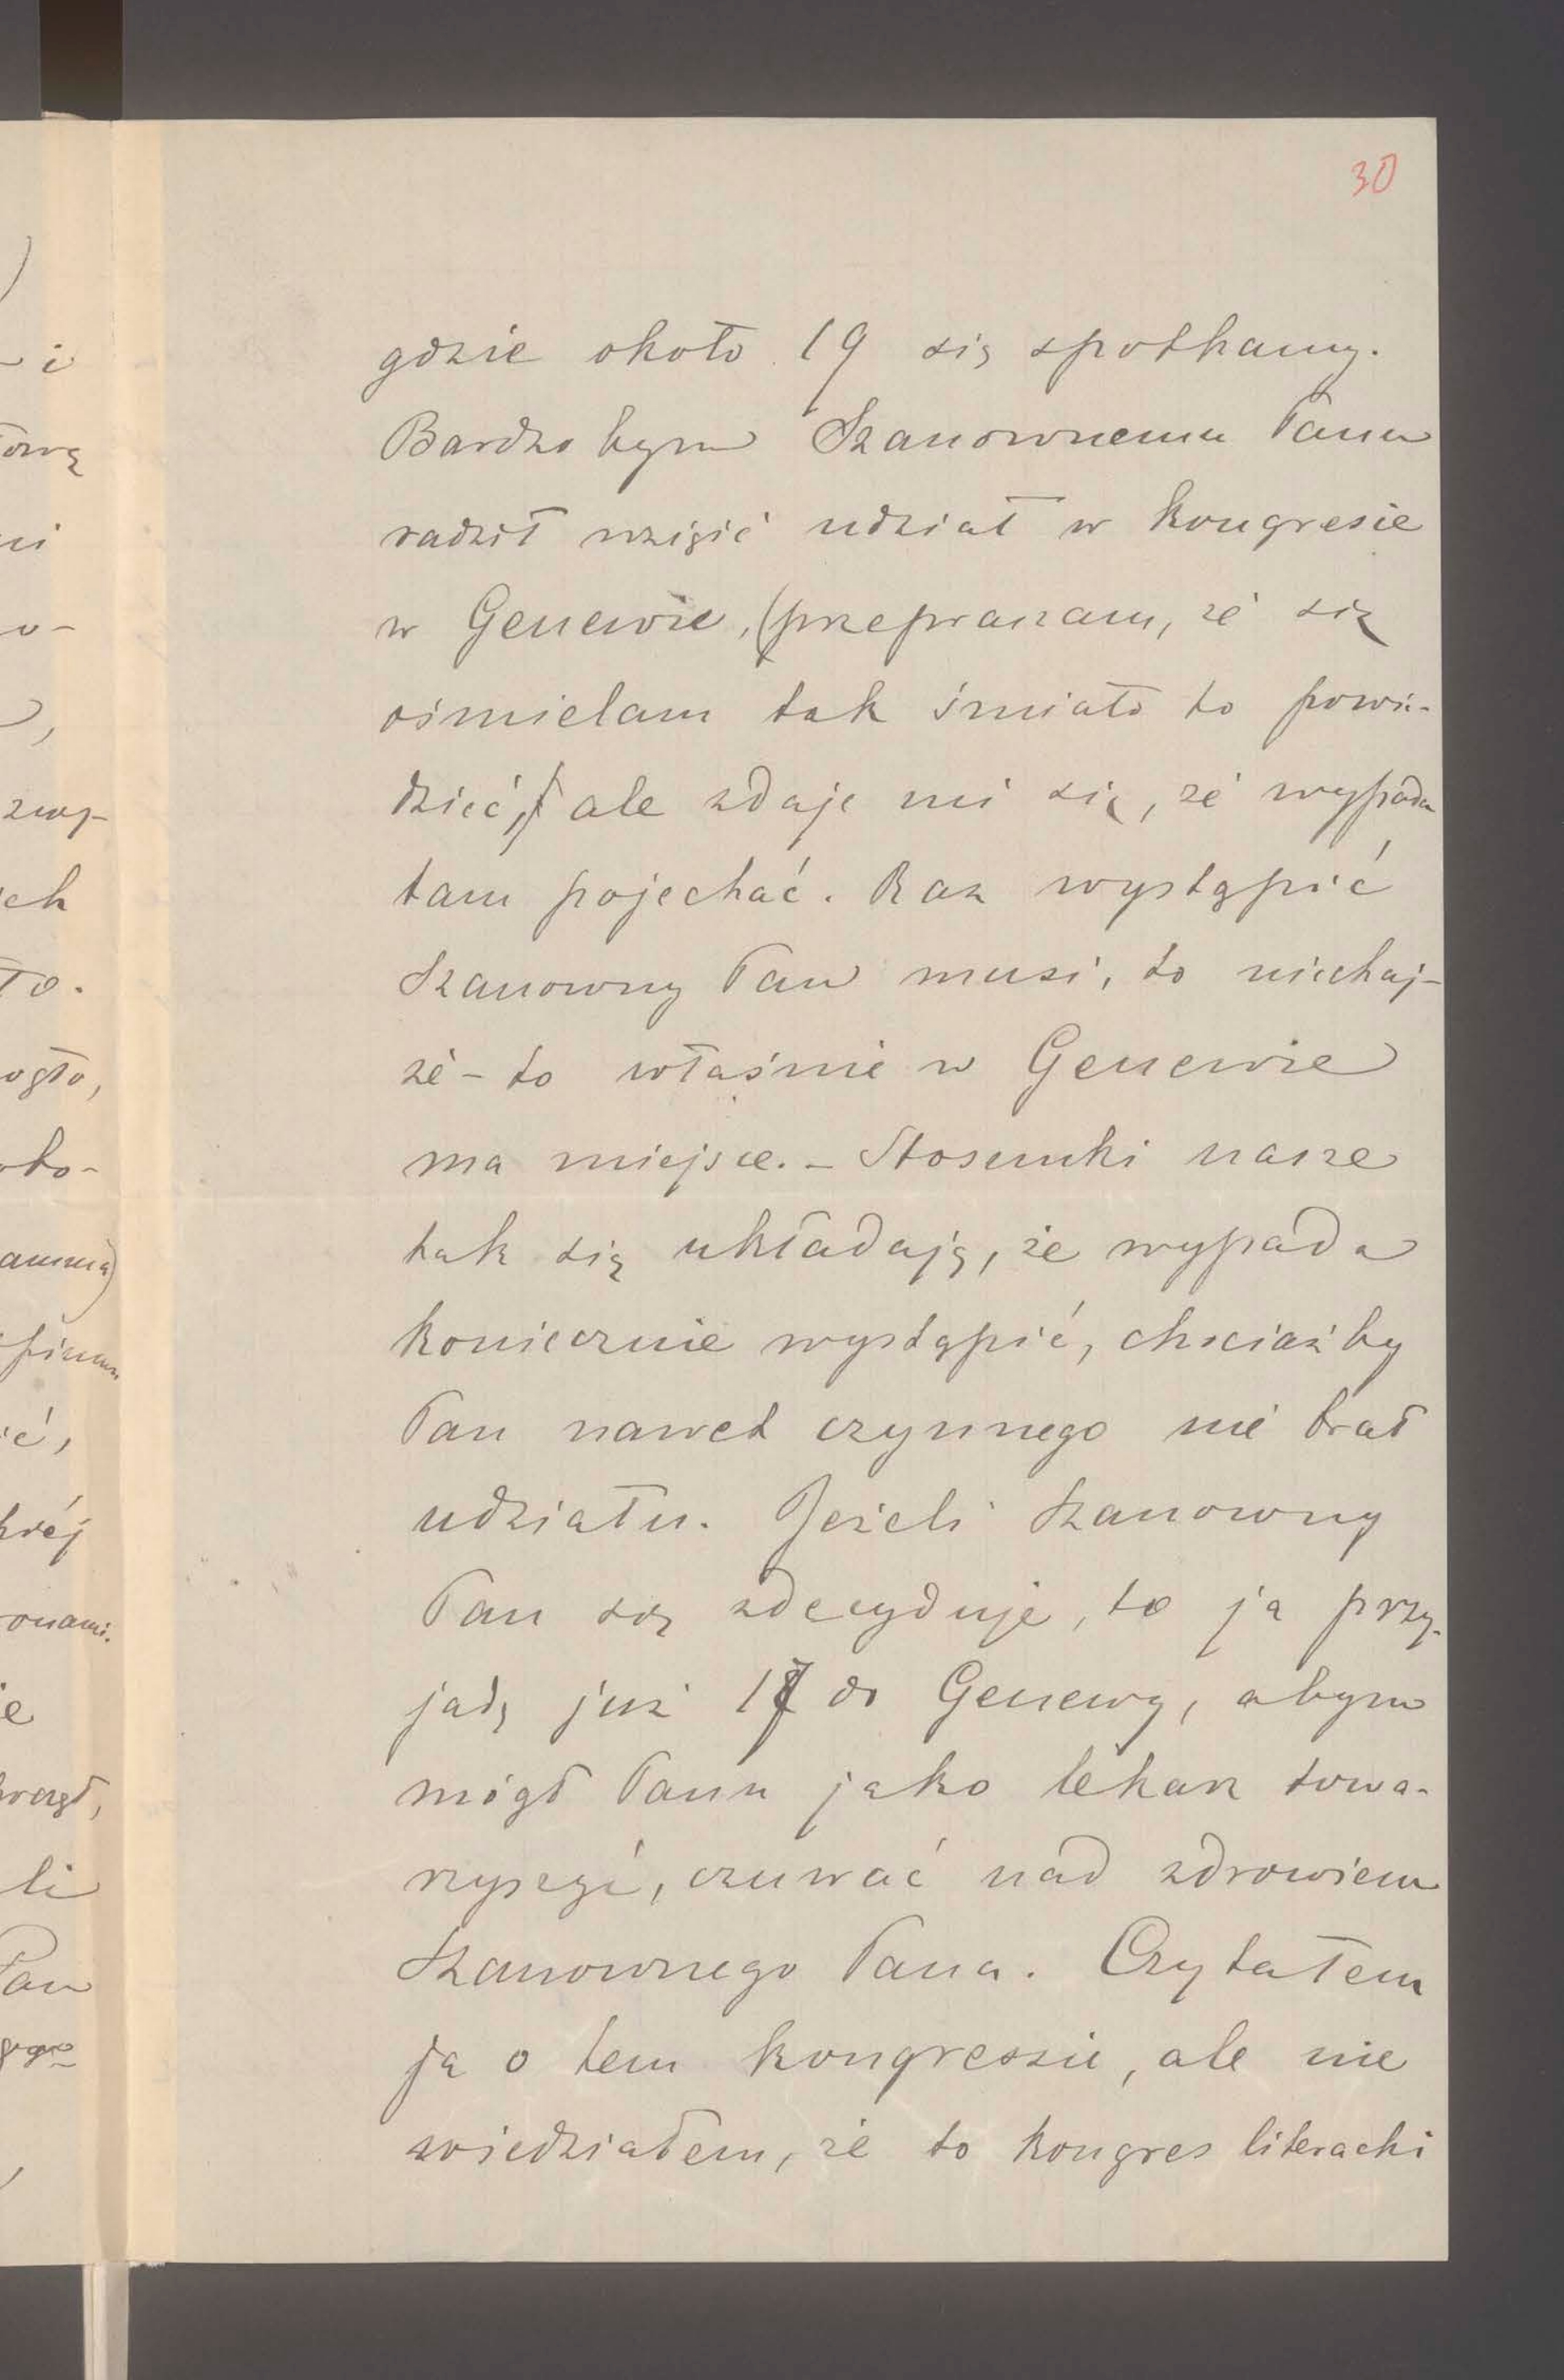 30
gdzie około 19 się spotkamy.
Bardzo bym Szanownemu Panu
radził wziąść udział w kongresie
w Genewie, (przepraszam, że się
ośmielam tak śmiało to powie-
dzieć,) ale zdaje mi się, że wypada
tam pojechać. Raz wystąpić
Szanowny Pan musi, to niechaj-
że-to właśnie w Genewie
ma miejsce. – Stosunki nasze
tak się układają, że wypada
koniecznie wystąpić, chociażby
Pan nawet czynnego nie brał
udziału. Jeżeli Szanowny
Pan się zdecyduje, to ja przy-
jadę już do Genewy, abym
mógł Panu jako lekarz towa-
rzyszyć, czuwać nad zdrowiem
Szanownego Pana. Czytałem
ja o tem kongressie, ale nie
wiedziałem, że to kongres literacki